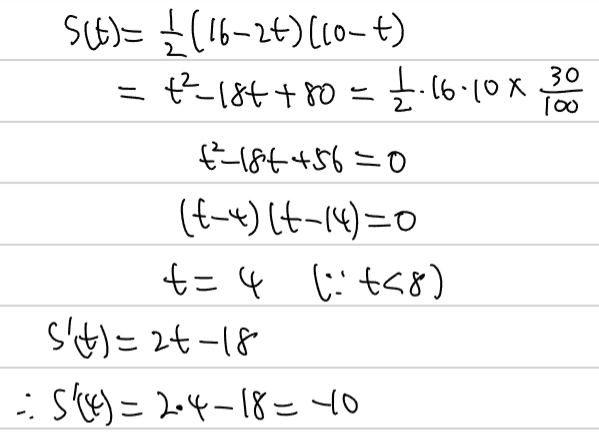 S(t) = 1/2 (16-2t)(10-t)
= t²-18t+80 = 1/2 · 16 · 10 × 30/100
t²-18t+56=0
(t-4)(t-14)=0
t = 4 (∵ t<8)
S'(t) = 2t-18
∴ S'(4) = 2·4-18 = -10